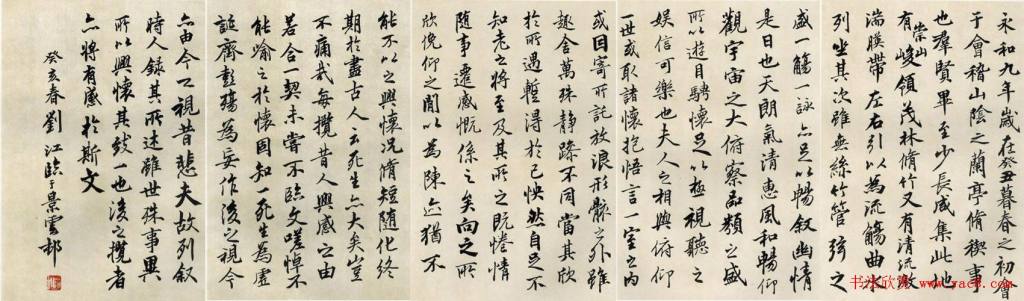 永和九年歲在癸丑暮春之初會
于會稽山陰之蘭亭脩禊事
也羣賢畢至少長咸集此地
有崇山峻領茂林脩竹又有清流激
湍暎帶左右引以為流觴曲
列坐其次雖無絲竹管弦之
盛一觴一詠亦足以暢叙幽情
是日也天朗氣清惠風和暢仰
觀宇宙之大俯察品類之盛
所以遊目騁懷足以極視聽之
娛信可樂也夫人之相與俯仰
一世或取諸懷抱悟言一室之內
或因寄所託放浪形骸之外雖
趣舍萬殊靜躁不同當其欣
於所遇蹔得於己怏然自足不
知老之將至及其所之既惓情
隨事遷感慨係之矣向之所
欣俛仰之閒以為陳迹猶不
能不以之興懷況脩短隨化終
期於盡古人云死生亦大矣豈
不痛哉每攬昔人興感之由
若合一契未嘗不臨文嗟悼不
能喻之於懷固知一死生為虛
誕齊彭殤為妄作後之視今
亦由今之視昔悲夫故列叙
時人錄其所述雖世殊事異
所以興懷其致一也後之攬者
亦將有感於斯文
癸亥春劉江臨于景雲邨
书法欣赏
www.yac8.com